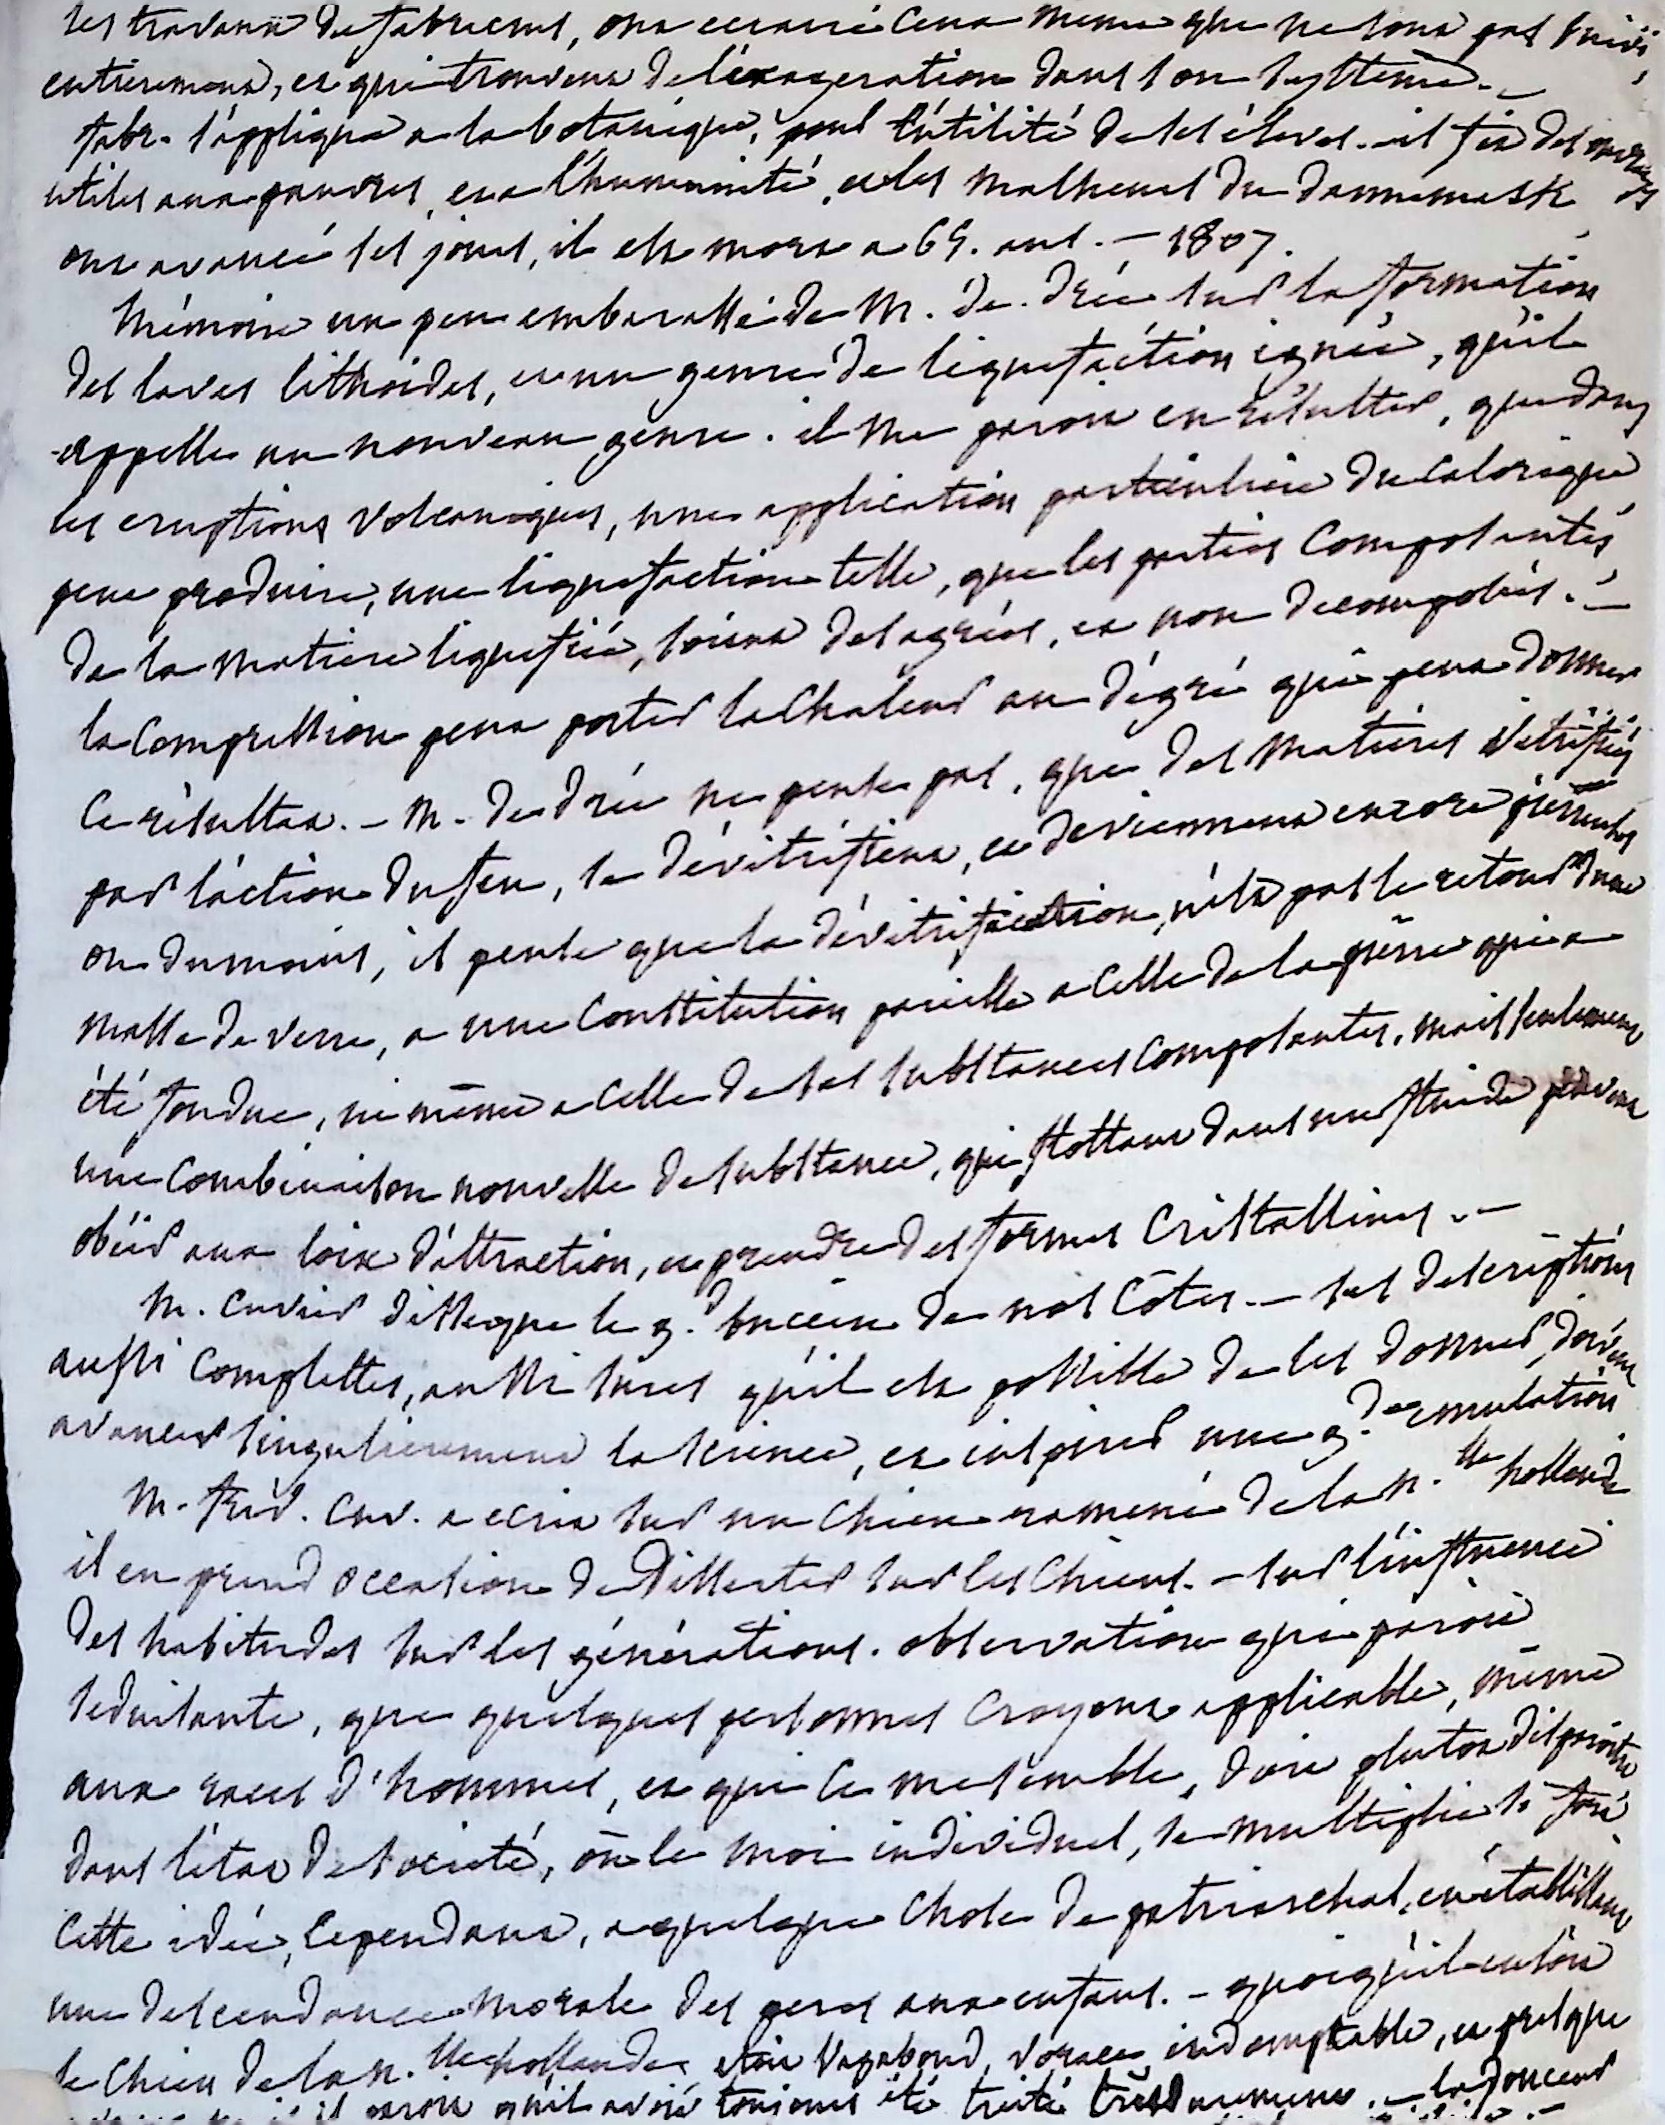 les travaux de fabricius, ont eclairé ceux meme que ne sont pas suivi
entierement, et qui trouvent de l'éxageration dans son systême. —
fabr. s'appliqua a la botanique, pour l'útilité de ses éleves. — il fit des ouvrages
utiles aux pauvres, et a l'humanité, et les malheurs du dannemark
ont avancé ses jours, il est mort a 69. ans. — 1807.
Mémoire un peu embarassé de M. de. drée sur la formation
des laves lithoides, et un genre de liquefaction ignée, qu'il
appelle un nouveau genre. il me paroit en résulter, que dans
les eruptions volcaniques, une application particuliere du calorique
peut produire, une liquefaction telle, que les parties composantes
de la matiere liquefiée, soient desagréés, et non decomposées. —
la compression peut porter la chaleur au dégré qui peut donner
ce résultat. — M. de drée ne pense pas, que des matieres vitrifiées
par l'action du feu, se dévitrifient, et deviennent encore pierreuses
ou du moins, il pense que la dévitrification, n'est pas le retour d'une
masse de verre, a une constitution pareille a celle de la pierre qui a
été fondue, ni même a celle de ses substances composantes, mais seulement
une combinaison nouvelle de substance, qui flottant dans un fluide peuvent
obéir aux loix d'attraction, et prendre des formes cristallines. —
M. cuvier disseque le g.d buccin de nos côtes. — ses descriptions
aussi complettes, aussi sures qu'il est possible de les donner, doivent
avancer singulierement la science, et inspirer une g.de emulation.
M. fréd. cuv. a ecrit sur un chien ramené de la n.lle hollande
il en prend occasion de disserter sur les chiens. — sur l'influence
des habitudes sur les générations. observation qui paroit
seduisante, que quelques personnes croyent applicable, même
aux races d'hommes, et qui ce me semble, doit plutot disparoitre
dans l'état de societé, où le moi individuel, se multiplie si fort
cette idée, cependant, a quelque chose de patriarchal, en établissant
une descendance morale des peres aux enfans. — quoiqu'il en soit
le chien de la n.lle hollande, etoit vagabond, vorace, indomptable, et presque
il paroit qu'il avoit toujours été traité très durement. — la douceur